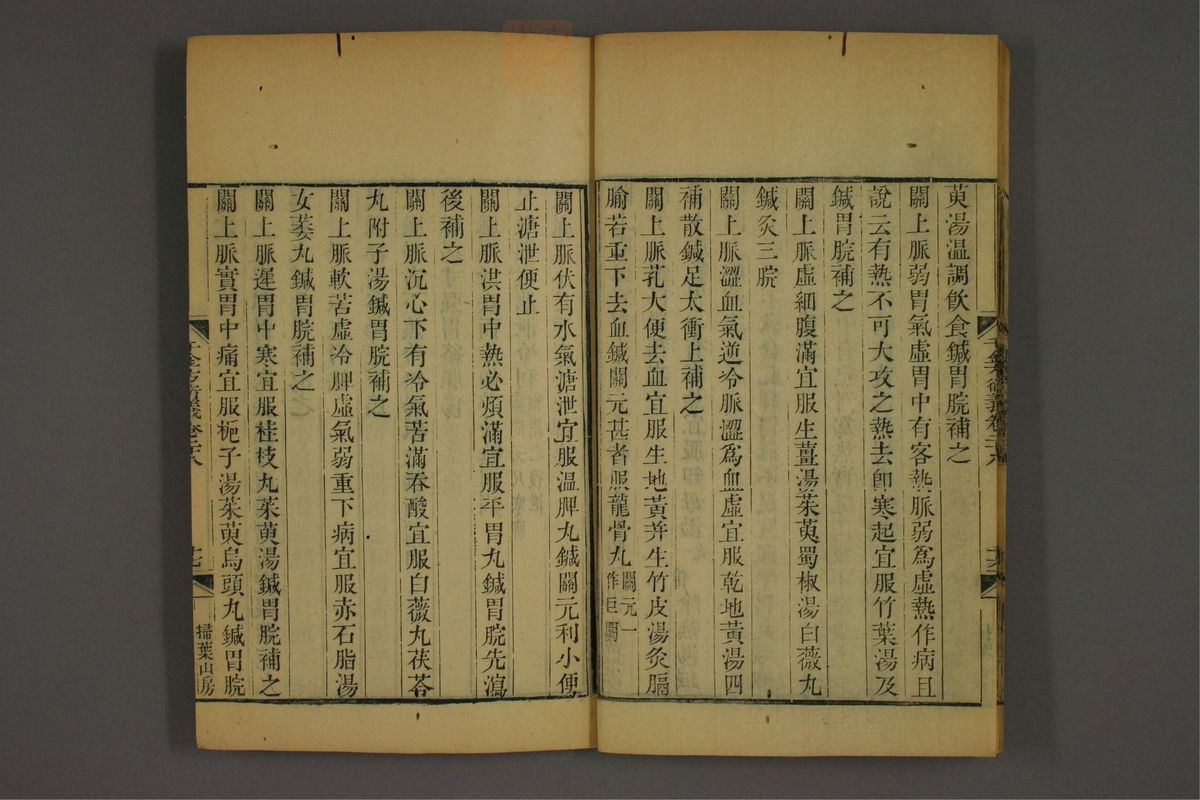 萸湯溫調飲食鍼胃脘補之
關上脈弱胃氣虛胃中有客熱脈弱爲虛熱作病且
說云有熱不可大攻之熱去卽寒起宜服竹葉湯及
鍼胃脘補之
關上脈虛細腹滿宜服生薑湯茱萸蜀椒湯白薇丸
鍼灸三脘
關上脈澀血氣逆冷脈澀爲血虛宜服乾地黃湯四
補散鍼足太衝上補之
關上脈芤大便去血宜服生地黃并生竹皮湯灸膈
腧若重下去血鍼關元甚者服龍骨丸
關元一
作巨闕
關上脈伏有水氣溏泄宜服溫脾丸鍼關元利小便
止溏泄便止
關上脈洪胃中熱必煩滿宜服平胃丸鍼胃脘先瀉
後補之
關上脈沉心下有冷氣苦滿吞酸宜服白薇丸茯苓
丸附子湯鍼胃脘補之
關上脈軟苦虛冷脾虛氣弱重下病宜服赤石脂湯
女萎丸鍼胃脘補之
關上脈遲胃中寒宜服桂枝丸茱萸湯鍼胃脘補之
關上脈實胃中痛宜服梔子湯茱萸烏頭丸鍼胃脘
千金方衍義卷二十八
十七
掃葉山房